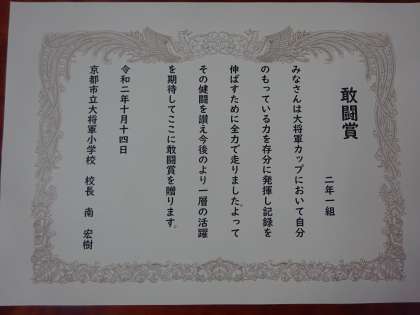 敢闘賞
二年一組
みなさんは大将軍カップにおいて自分
のもっている力を存分に発揮し記録を
伸ばすために全力で走りました。よって
その健闘を讃え今後のより一層の活躍
を期待してここに敢闘賞を贈ります。
令和二年十月十四日
京都市立大将軍小学校 校長 南 宏樹